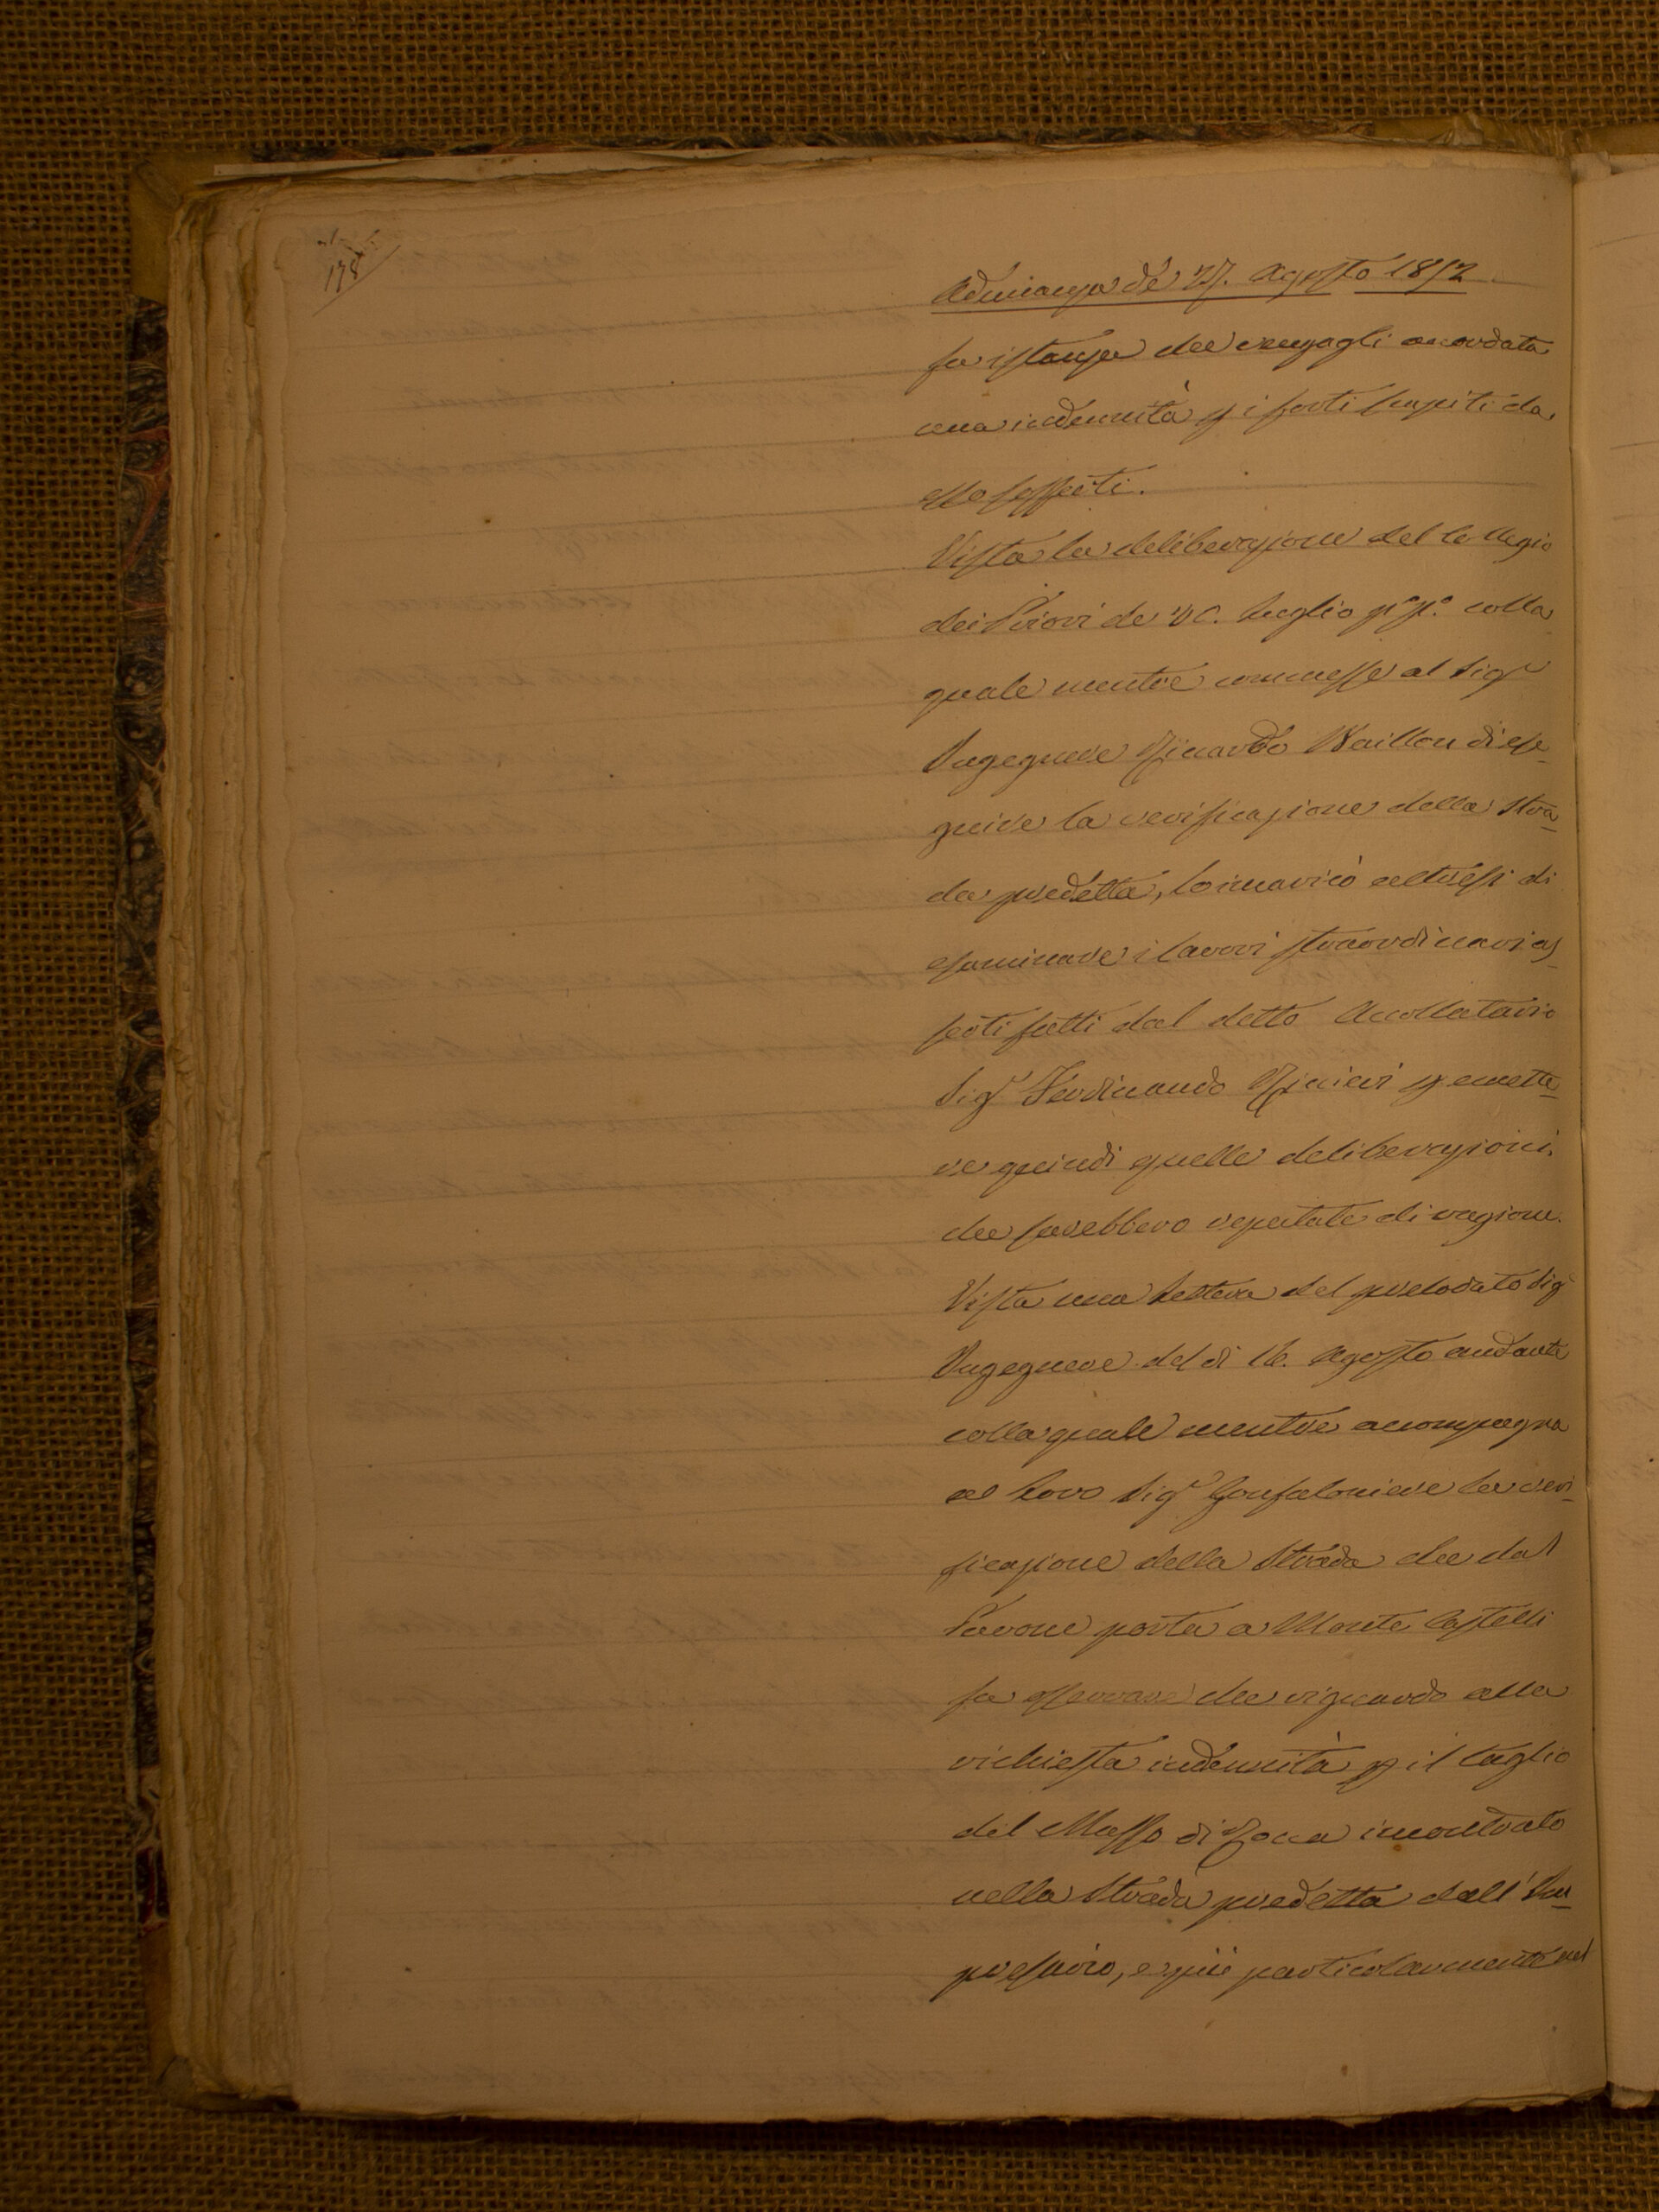 178
Adunanza de' 27. Agosto 1852
fa istanza che vengagli accordata
una indennità p i forti scapiti da
esso sofferti.
Vista la deliberazione del Collegio
dei Priori de' Luglio p.° p.° colla
quale mentre commesse al Sig.r
Ingegnere Ricardo Waillon di ese-
guire la verificazione della Stra-
da predetta, lo incaricò altresì di
esaminare i lavori straordinari as-
seriti fatti dal detto Accollatario
Sig.r Ferdinando Ricieri p emette-
re quindi quelle deliberazioni,
che sarebbero reputate di ragione.
Vista una Lettera del prelodato Sig.r
Ingegnere del dì 16. Agosto andante
colla quale mentre accompagna
al loro Sig.r Gonfaloniere la veri-
ficazione della Strada che dal
Pavone porta a Monte Castelli
fa osservare che riguardo alla
richiesta indennità p il taglio
del Masso di Rocca incontrato
nella Strada predetta dall'Im-
presario, e più particolarmente nel